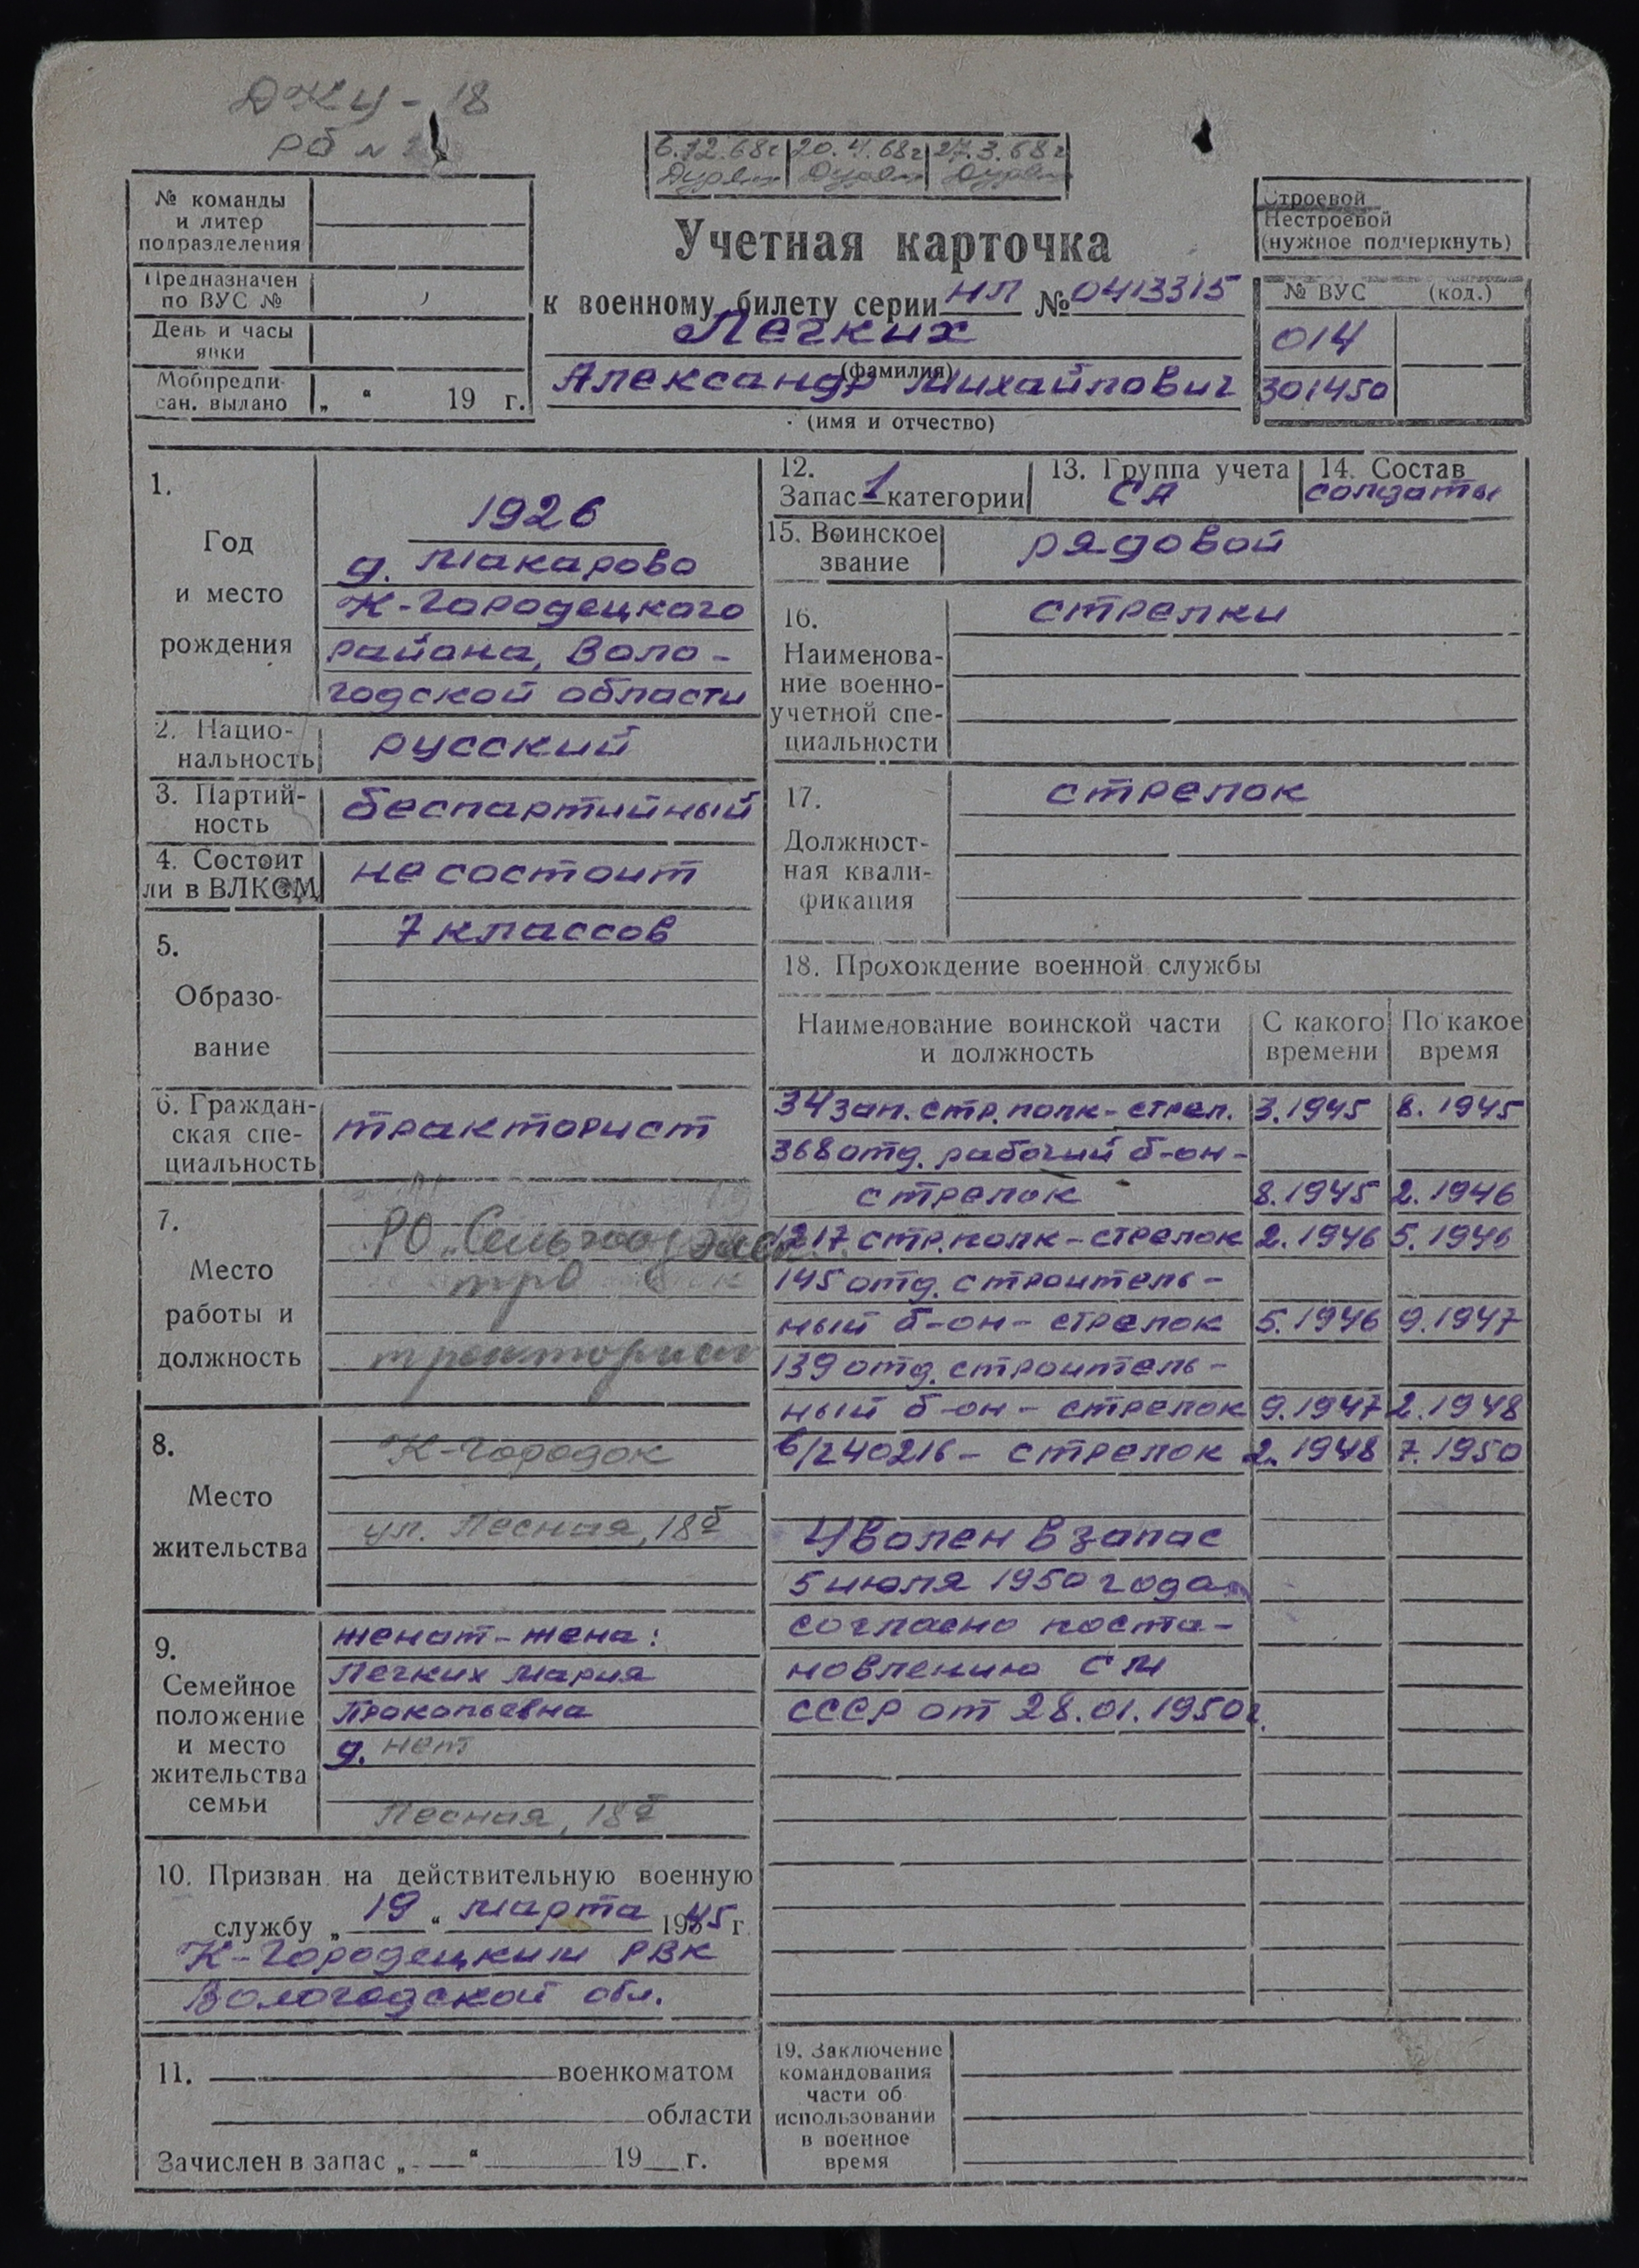 ДКУ - 18
РБ №
6.12.68г 20.4.68г 27.3.68г
№ команды
и литер
подразделения
Предназначен
по ВУС №
День и часы
явки
Мобпредпи-
сан. выдано „ “ 19 г.
Учетная карточка
к военному билету серии НЛ № 0413315
Легких
(фамилия)
Александр Михайлович
(имя и отчество)
Строевой
Нестроевой
(нужное подчеркнуть)
№ ВУС (код.)
014
301450
1.
Год
и место
рождения
1926
д. Макарово
К-Городецкого
района, Воло-
годской области
2. Нацио-
нальность
русский
3. Партий-
ность
беспартийный
4. Состоит
ли в ВЛКСМ
не состоит
5.
Образо-
вание
7 классов
6. Граждан-
ская спе-
циальность
тракторист
7.
Место
работы и
должность
РО „Сельхоз
тракторист
8.
Место
жительства
К-Городок
ул. Лесная, 18
9.
Семейное
положение
и место
жительства
семьи
женат - жена:
Легких Мария
Прокопьевна
д. нет
Лесная, 18
10. Призван на действительную военную
службу „ 19 “ марта 1945 г.
К-Городецким РВК
Вологодской обл.
11. военкоматом
области
Зачислен в запас „ “ 19 г.
12.
Запас 1 категории
13. Группа учета
СА
14. Состав
солдаты
15. Воинское
звание
рядовой
16.
Наименова-
ние военно-
учетной спе-
циальности
стрелки
17.
Должност-
ная квали-
фикация
стрелок
18. Прохождение военной службы
Наименование воинской части
и должность
С какого
времени
По какое
время
34 зап. стр. полк - стрел. 3.1945 8.1945
368 отд. рабочий б-он -
стрелок 8.1945 2.1946
1217 стр. полк - стрелок 2.1946 5.1946
145 отд. строитель-
ный б-он - стрелок 5.1946 9.1947
139 отд. строитель-
ный б-он - стрелок 9.1947 2.1948
в/ч 40216 - стрелок 2.1948 7.1950
Уволен в запас
5 июля 1950 года
согласно поста-
новлению СМ
СССР от 28.01.1950г.
19. Заключение
командования
части об
использовании
в военное
время